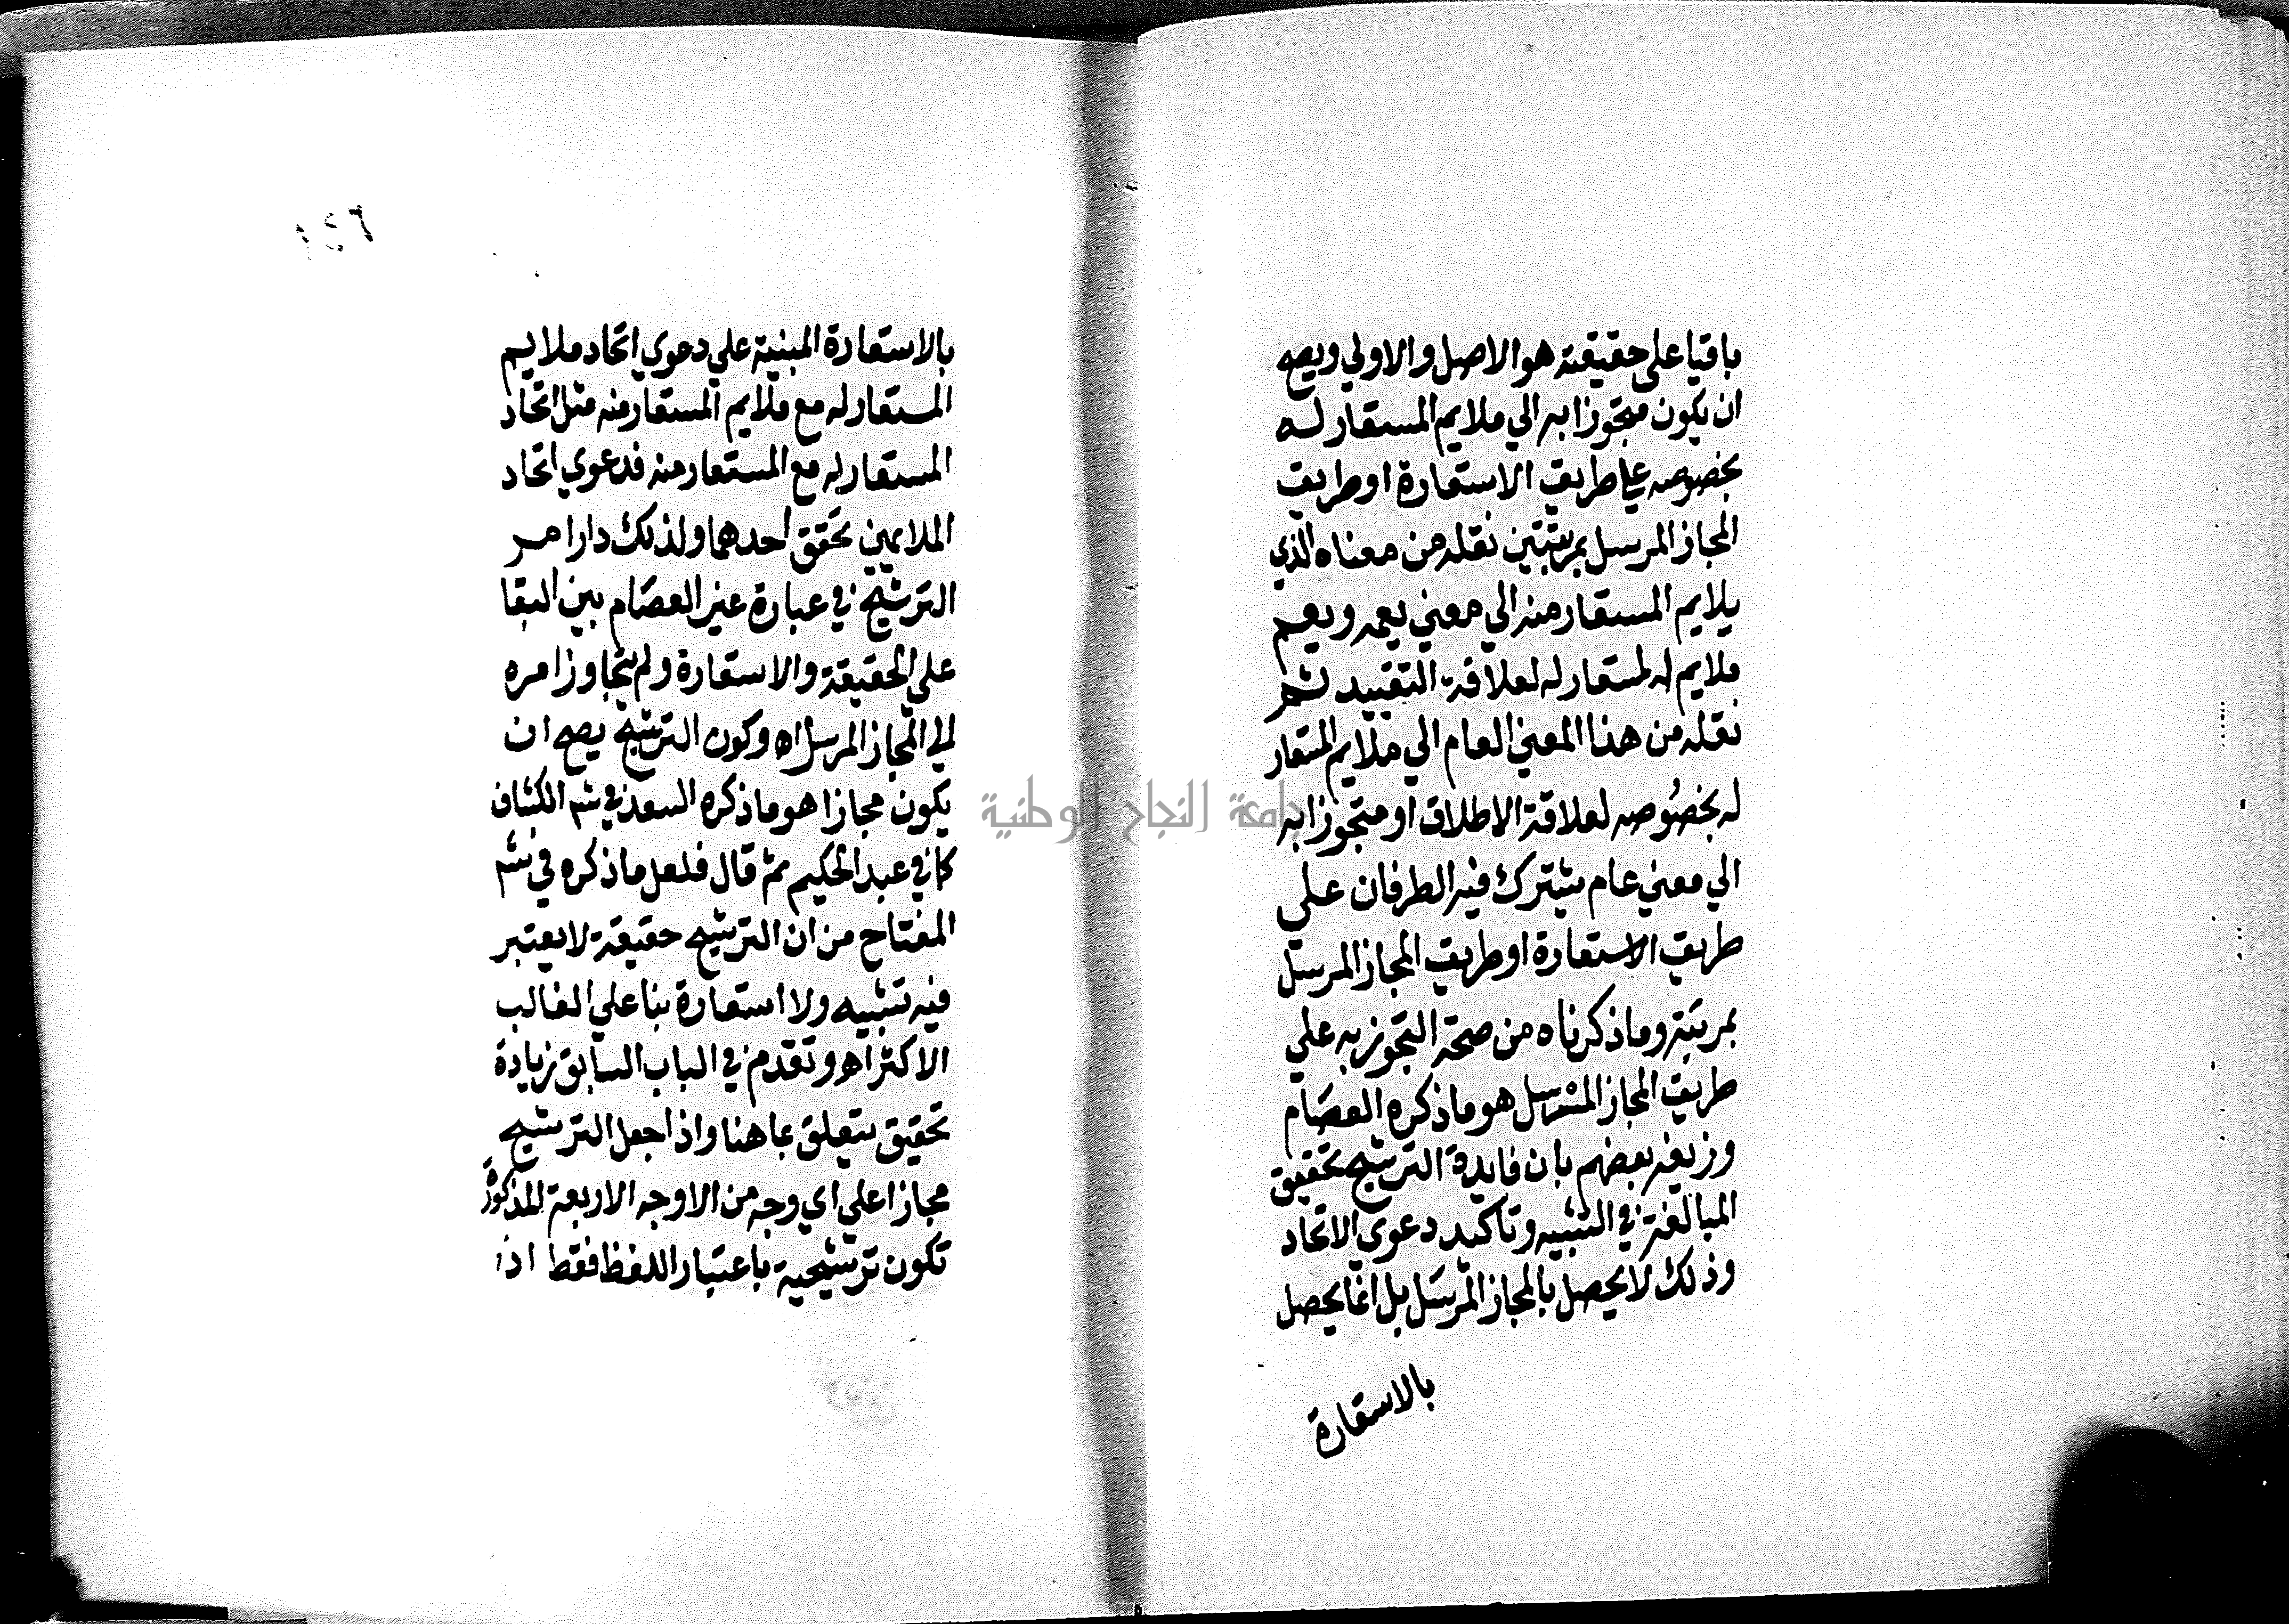 باقيا على حقيقته هو الاصل والاولي ويصح
ان يكون متجوزا به الي ملايم المستعار له
بخصوصه علي طريق الاستعارة او طريق
المجاز المرسل بمرتبتين نقله من معناه الذي
يلايم المستعار منه الي معني يعمه ويعم
ملايم المستعار له لعلاقة التقييد ثم
نقله من هذا المعني العام الي ملايم المستعار
له بخصوصه لعلاقة الاطلاق او متجوزا به
الي معني عام يشترك فيه الطرفان علي
طريق الاستعارة او طريق المجاز المرسل
بمرتبة وما ذكرناه من صحة التجوز به علي
طريق المجاز المرسل هو ما ذكره العصام
وزيفه بعضهم بان فايدة الترشيح تحقيق
المبالغة في التشبيه وتاكيد دعوي الاتحاد
وذلك لا يحصل بالمجاز المرسل بل انما يحصل
بالاستعارة
بالاستعارة المبنية علي دعوي اتحاد ملايم
المستعار له مع ملايم المستعار منه مثل اتحاد
المستعار له مع المستعار منه فدعوي اتحاد
الملايمين تحقق احدهما ولذلك دار امر
الترشيح في عبارة غير العصام بين البقا
علي الحقيقة والاستعارة ولم يتجاوز امره
الي المجاز المرسل اه وكون الترشيح يصح ان
يكون مجازا هو ما ذكره السعد في شم الكشاف
كما في عبد الحكيم ثم قال فلعل ما ذكره في شم
المفتاح من ان الترشيح حقيقة لا يعتبر
فيه تشبيه ولا استعارة بنا علي الغالب
الاكثر اه وتقدم في الباب السابق زيادة
تحقيق يتعلق بما هنا واذا جعل الترشيح
مجازا علي اي وجه من الاوجه الاربعة المذكورة
تكون ترشيحية باعتبار اللفظ فقط اذ
جامعة النجاح الوطنية